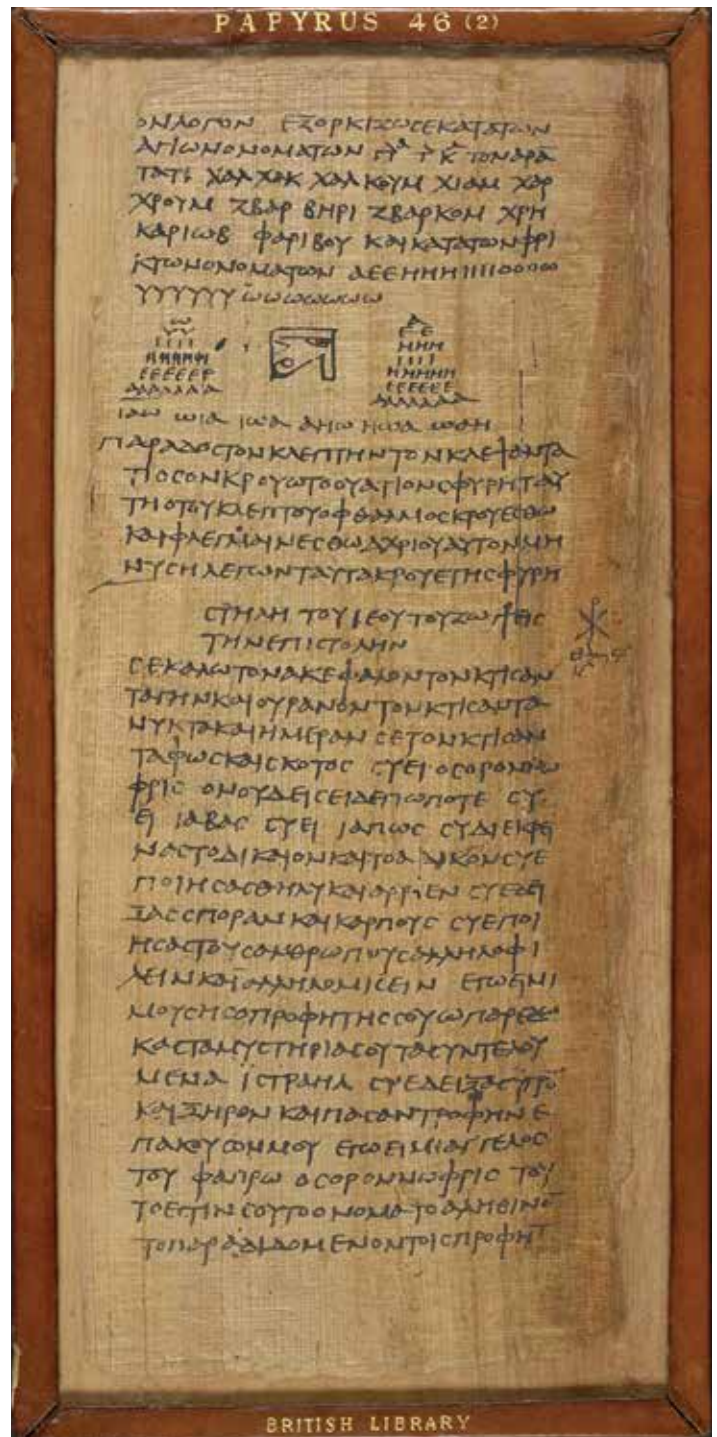 PAPYRUS 46 (2)
ΟΝΛΟΓΟΝ ΕΞΟΡΚΙΖΩϹΕΚΑΤΑΤΩΝ
ΑΓΙΩΝΟΝΟΜΑΤΩΝ ΤΟΝΑΡΑ
ΤΑΤΕ ΧΑΛΧΑΚ ΧΑΛΚΟΥΜ ΧΙΑΜ ΧΑΡ
ΧΡΟΥΜ ΖΒΑΡ ΒΗΡΙ ΖΒΑΡΚΟΜ ΧΡΗ
ΚΑΡΙΩΒ ΦΑΡΙΒΟΥ ΚΑΙΚΑΤΑΤΩΝΦΡΙ
ΚΤΩΝΟΝΟΜΑΤΩΝ ΑΕΕΗΗΗΙΙΙΙΟΟΟΟΟ
ΥΥΥΥΥΥ ωωωωωωω
ω Α
ΥΥ ΕΕ
ΙΙΙΙ ΗΗΗ
ΗΗΗΗΗ ΙΙΙΙ
ΕΕΕΕΕΕ ΗΗΗΗΗ
ΑΑΑΑΑΑΑ ΕΕΕΕΕΕ
ΑΑΑΑΑΑΑ
ΙΑΩ ΩΙΑ ΙΩΑ ΑΗΩ ΗΩΑ ΩΘΗ
ΠΑΡΑΔΟϹΤΟΝΚΛΕΠΤΗΝΤΟΝΚΛΕΨΑΝΤΑ
ΤΙΟϹΟΝΚΡΟΥΩΤΟΟΥΑΤΙΟΝϹΦΥΡΗΤΑΥ
ΤΗΟΤΟΥΚΛΕΠΤΟΥΟΦΘΑΛΜΟϹΚΡΟΥΕϹΘΩ
ΚΑΙΦΛΕΓΜΑΙΝΕϹΘΩΑΧΡΙΟΥΑΥΤΟΝΜΗ
ΝΥϹΗΛΕΓΩΝΤΑΥΤΑΚΡΟΥΕΤΗϹΦΥΡΗ
ϹΤΗΛΗ ΤΟΥΙΕΟΥΤΟΥΖΩΓΕΙϹ
ΤΗΝΕΠΙϹΤΟΛΗΝ
ϹΕΚΑΛΩΤΟΝΑΚΕΦΑΛΟΝΤΟΝΚΤΙϹΑΝ
ΤΑΓΗΝΚΑΙΟΥΡΑΝΟΝΤΟΝΚΤΙϹΑΝΤΑ
ΝΥΚΤΑΚΑΙΗΜΕΡΑΝ ϹΕΤΟΝΚΤΙϹΑΝ
ΤΑΦΩϹΚΑΙϹΚΟΤΟϹ ϹΥΕΙΟϹΟΡΟΝΝΩ
ΦΡΙϹ ΟΝΟΥΔΕΙϹΕΙΔΕΠΩΠΟΤΕ ϹΥ
ΕΙ ΙΑΒΑϹ ϹΥΕΙ ΙΑΠΩϹ ϹΥΔΙΕΚΡΕΙ
ΝΑϹΤΟΔΙΚΑΙΟΝΚΑΙΤΟΑΔΙΚΟΝϹΥΕ
ΠΟΙΗϹΑϹΘΗΛΥΚΑΙΑΡΡΕΝ ϹΥΕΔΕΙ
ΞΑϹϹΠΟΡΑΝΚΑΙΚΑΡΠΟΥϹ ϹΥΕΠΟΙ
ΗϹΑϹΤΟΥϹΑΝΘΡΩΠΟΥϹΑΛΛΗΛΟΦΙ
ΛΕΙΝΚΑΙΑΛΛΗΛΟΜΙϹΕΙΝ ΕΓΩΕΙΜΙ
ΜΟΥϹΗϹΟΠΡΟΦΗΤΗϹϹΟΥΩΠΑΡΕΔΩ
ΚΑϹΤΑΜΥϹΤΗΡΙΑϹΟΥΤΑϹΥΝΤΕΛΟΥ
ΜΕΝΑ ΙϹΤΡΑΗΛ ϹΥΕΔΕΙΞΑϹΥΓΡΟ
ΚΑΙΞΗΡΟΝ ΚΑΙΠΑϹΑΝΤΡΟΦΗΝ Ε
ΠΑΚΟΥϹΟΝΜΟΥ ΕΓΩΕΙΜΙΑΓΓΕΛΟϹ
ΤΟΥ ΦΑΠΡΩ ΟϹΟΡΟΝΝΩΦΡΙϹ ΤΟΥ
ΤΟΕϹΤΙΝϹΟΥΤΟΟΝΟΜΑΤΟΑΛΗΘΙΝΟ
ΤΟΠΑΡΑΔΙΔΟΜΕΝΟΝΤΟΙϹΠΡΟΦΗΤ
BRITISH LIBRARY